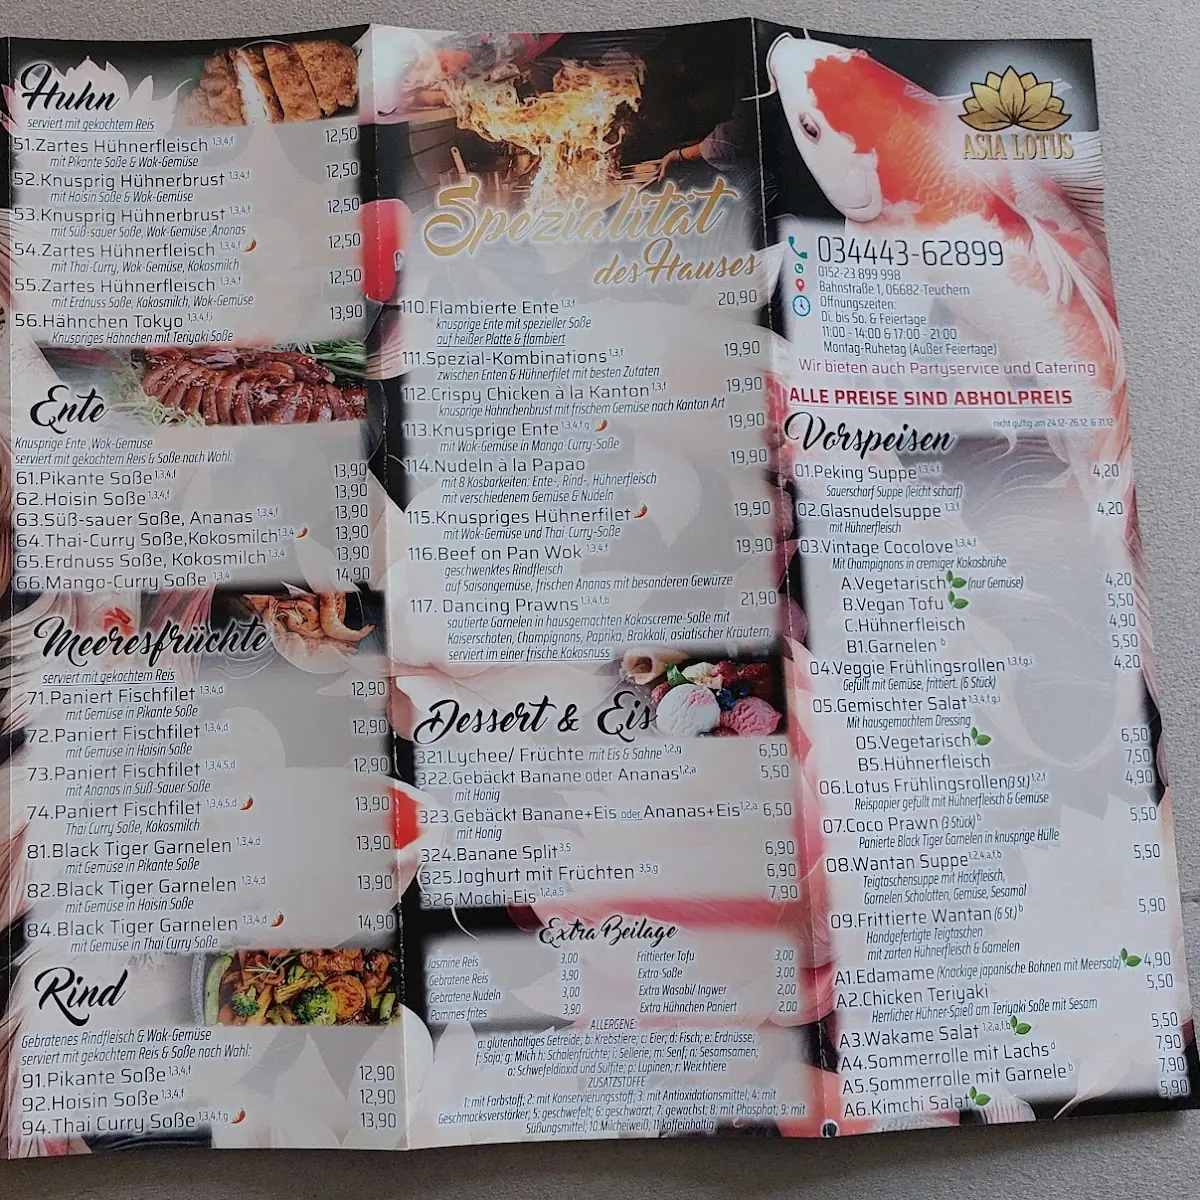 Huhn
serviert mit gekochtem Reis
51.Zartes Hühnerfleisch 1,3,4,f 12,50
mit Pikante Soße & Wok-Gemüse
52.Knusprig Hühnerbrust 1,3,4,f 12,50
mit Hoisin Soße & Wok-Gemüse
53.Knusprig Hühnerbrust 1,3,4,f 12,50
mit Süß-sauer Soße, Wok-Gemüse, Ananas
54.Zartes Hühnerfleisch 1,3,4,f 12,50
mit Thai-Curry, Wok-Gemüse, Kokosmilch
55.Zartes Hühnerfleisch 1,3,4,f 12,50
mit Erdnuss Soße, Kokosmilch, Wok-Gemüse
56.Hähnchen Tokyo 1,3,4,f,i 13,90
Knuspriges Hähnchen mit Teriyaki Soße
Ente
Knusprige Ente ,Wok-Gemüse
serviert mit gekochtem Reis & Soße nach Wahl:
61.Pikante Soße 1,3,4,f 13,90
62.Hoisin Soße 1,3,4,f 13,90
63.Süß-sauer Soße, Ananas 1,3,4,f 13,90
64.Thai-Curry Soße,Kokosmilch 1,3,4 13,90
65.Erdnuss Soße, Kokosmilch 1,3,4 13,90
66.Mango-Curry Soße 1,3,4 14,90
Meeresfrüchte
serviert mit gekochtem Reis
71.Paniert Fischfilet 1,3,4,d 12,90
mit Gemüse in Pikante Soße
72.Paniert Fischfilet 1,3,4,d 12,90
mit Gemüse in Hoisin Soße
73.Paniert Fischfilet 1,3,4,5,d 12,90
mit Ananas in Süß-Sauer Soße
74.Paniert Fischfilet 1,3,4,5,d 13,90
Thai Curry Soße, Kokosmilch
81.Black Tiger Garnelen 1,3,4,d 13,90
mit Gemüse in Pikante Soße
82.Black Tiger Garnelen 1,3,4,d 13,90
mit Gemüse in Hoisin Soße
84.Black Tiger Garnelen 1,3,4,d 14,90
mit Gemüse in Thai Curry Soße
Rind
Gebratenes Rindfleisch & Wok-Gemüse
serviert mit gekochtem Reis & Soße nach Wahl:
91.Pikante Soße 1,3,4,f 12,90
92.Hoisin Soße 1,3,4,f 12,90
94.Thai Curry Soße 1,3,4,f,g 13,90
Spezialität
des Hauses
110.Flambierte Ente 1,3,f 20,90
knusprige Ente mit spezieller Soße
auf heißer Platte & flambiert
111.Spezial-Kombinations 1,3,f 19,90
zwischen Enten & Hühnerfilet mit besten Zutaten
112.Crispy Chicken à la Kanton 1,3,f 19,90
knusprige Hähnchenbrust mit frischem Gemüse nach Kanton Art
113.Knusprige Ente 1,3,4,f,g 19,90
mit Wok-Gemüse in Mango-Curry-Soße
114.Nudeln à la Papao 19,90
mit 8 Kosbarkeiten: Ente-, Rind-, Hühnerfleisch
mit verschiedenem Gemüse & Nudeln
115.Knuspriges Hühnerfilet 19,90
mit Wok-Gemüse und Thai-Curry-Soße
116.Beef on Pan Wok 1,3,4,f 19,90
geschwenktes Rindfleisch
auf Saisongemüse, frischen Ananas mit besonderen Gewürze
117. Dancing Prawns 1,3,4,f,b 21,90
sautierte Garnelen in hausgemachten Kokoscreme-Soße mit
Kaiserschoten, Champignons, Paprika, Brokkoli, asiatischer Kräutern,
serviert im einer frische Kokosnuss
Dessert & Eis
321.Lychee/ Früchte mit Eis & Sahne 1,2,g 6,50
322.Gebäckt Banane oder Ananas 1,2,a 5,50
mit Honig
323.Gebäckt Banane+Eis oder Ananas+Eis 1,2,a 6,50
mit Honig
324.Banane Split 3,5 6,90
325.Joghurt mit Früchten 3,5,g 6,90
326.Mochi-Eis 1,2,a,5 7,90
Extra Beilage
Jasmine Reis 3,00
Gebratene Reis 3,90
Gebratene Nudeln 3,00
Pommes frites 3,90
Frittierter Tofu 3,00
Extra-Soße 3,00
Extra Wasabi/ Ingwer 2,00
Extra Hühnchen Paniert 2,00
ALLERGENE:
a: glutenhaltiges Getreide; b: Krebstiere; c: Eier; d: Fisch; e: Erdnüsse;
f:Soja; g: Milch h: Schalenfrüchte; i: Sellerie; m: Senf; n: Sesamsamen;
o: Schwefeldioxid und Sulfite; p: Lupinen; r: Weichtiere
ZUSATZSTOFFE
1: mit Farbstoff; 2: mit Konservierungsstoff; 3: mit Antioxidationsmittel, 4: mit
Geschmacksverstärker; 5: geschwefelt; 6: geschwärzt; 7: gewachst; 8: mit Phosphat; 9: mit
Süßungsmittel; 10:Milcheiweiß; 11:koffeinhaltig
ASIA LOTUS
034443-62899
0152-23 899 998
Bahnstraße 1, 06682-Teuchern
Öffnungszeiten:
Di. bis So. & Feiertage
11:00 - 14:00 & 17:00 - 21:00
Montag-Ruhetag (Außer Feiertage)
Wir bieten auch Partyservice und Catering
ALLE PREISE SIND ABHOLPREIS
nicht gültig am 24.12- 26.12. & 31.12
Vorspeisen
01.Peking Suppe 1,3,4,f 4,20
Sauerscharf Suppe (leicht scharf)
02.Glasnudelsuppe 1,3,f 4,20
mit Hühnerfleisch
03.Vintage Cocolove 1,3,4,f
Mit Champignons in cremiger Kokosbrühe
A.Vegetarisch (nur Gemüse) 4,20
B.Vegan Tofu 5,50
C.Hühnerfleisch 4,90
B1.Garnelen b 5,50
04.Veggie Frühlingsrollen 1,3,f,g,i 4,20
Gefüllt mit Gemüse, frittiert. (6 Stück)
05.Gemischter Salat 1,3,4,f,g,i
Mit hausgemachtem Dressing
05.Vegetarisch 6,50
B5.Hühnerfleisch 7,50
06.Lotus Frühlingsrollen(3 St.) 1,2,f 4,90
Reispapier gefüllt mit Hühnerfleisch & Gemüse
07.Coco Prawn (3 Stück) b 5,50
Panierte Black Tiger Garnelen in knusprige Hülle
08.Wantan Suppe 1,2,4,a,f,b 5,50
Teigtaschensuppe mit Hackfleisch,
Garnelen Schalotten, Gemüse, Sesamöl
09.Frittierte Wantan (6 St.) b 5,90
Handgefertigte Teigtaschen
mit zarten Hühnerfleisch & Garnelen
A1.Edamame (Knackige japanische Bohnen mit Meersalz) 4,90
A2.Chicken Teriyaki 5,50
Herrlicher Hühner-Spieß am Teriyaki Soße mit Sesam
A3.Wakame Salat 1,2,a,f,b 5,50
A4.Sommerrolle mit Lachs d 7,90
A5.Sommerrolle mit Garnele b 7,90
A6.Kimchi Salat 5,90